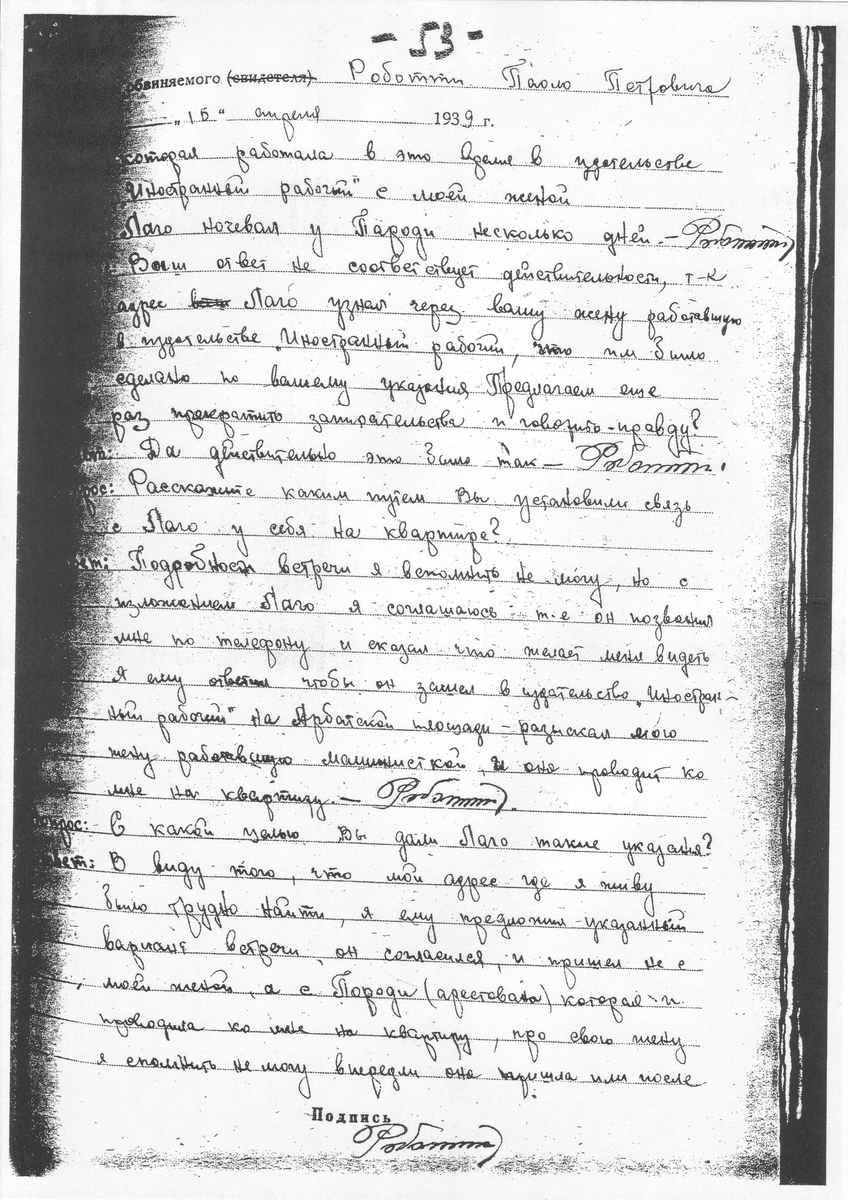 - 53 -
обвиняемого (свидетеля) Роботти Паоло Петровича
„15“ апреля 1939 г.
которая работала в это время в издательстве
„Иностранный рабочий“ с моей женой
Лаго ночевал у Пароди несколько дней. – Роботти
Ваш ответ не соответствует действительности, т-к
адрес Лаго узнал через вашу жену работавшую
в издательстве „Иностранный рабочий, что им было
сделано по вашему указания Предлагаем еще
раз прекратить запирательства и говорить-правду?
Да действительно это было так – Роботти.
рос: Расскажите каким путем Вы установили связь
с Лаго у себя на квартире?
ет: Подробности встречи я вспомнить не могу, но с
изложением Лаго я соглашаюсь т-е он позвонил
мне по телефону и сказал что желает меня видеть
Я ему ответил чтобы он зашел в издательство „Иностран-
ный рабочий“ на Арбатской площади – разыскал мою
жену работавшую машинисткой, и она проводит ко
мне на квартиру. – Роботти.
прос: С какой целью Вы дали Лаго такие указания?
вет: В виду того, что мой адрес где я живу
было трудно найти, я ему предложил указанный
вариант встречи, он согласился, и пришел не с
моей женой, а с Пароди (арестована) которая и
проводила ко мне на квартиру, про свою жену
я спомнить не могу впереди она пришла или после
Подпись
Роботти